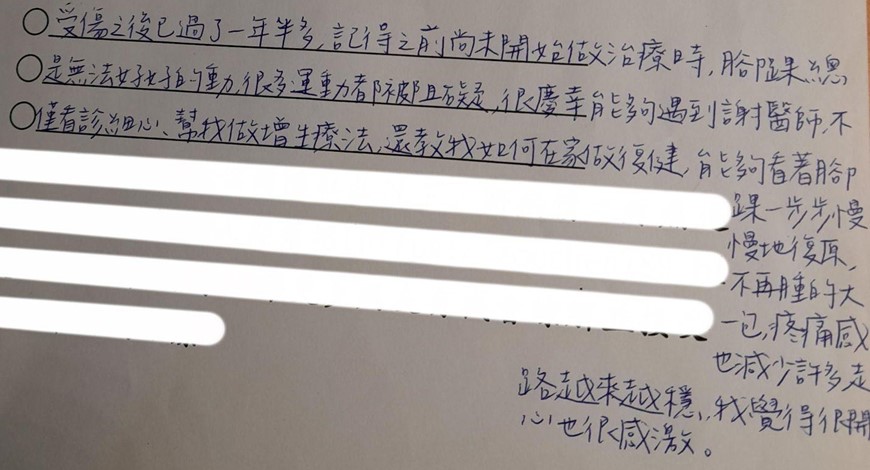 受傷之後已過了一年半多,記得之前尚未開始做治療時,腳踝總
是無法好好的動,很多運動都被阻礙,很慶幸能夠遇到謝醫師,不
僅看診細心、幫我做增生療法,還教我如何在家做復健,能夠看著腳
踝一步步慢
慢地復原,
不再腫的大
一包,疼痛感
也減少許多走
路越來越穩,我覺得很開
心也很感激。